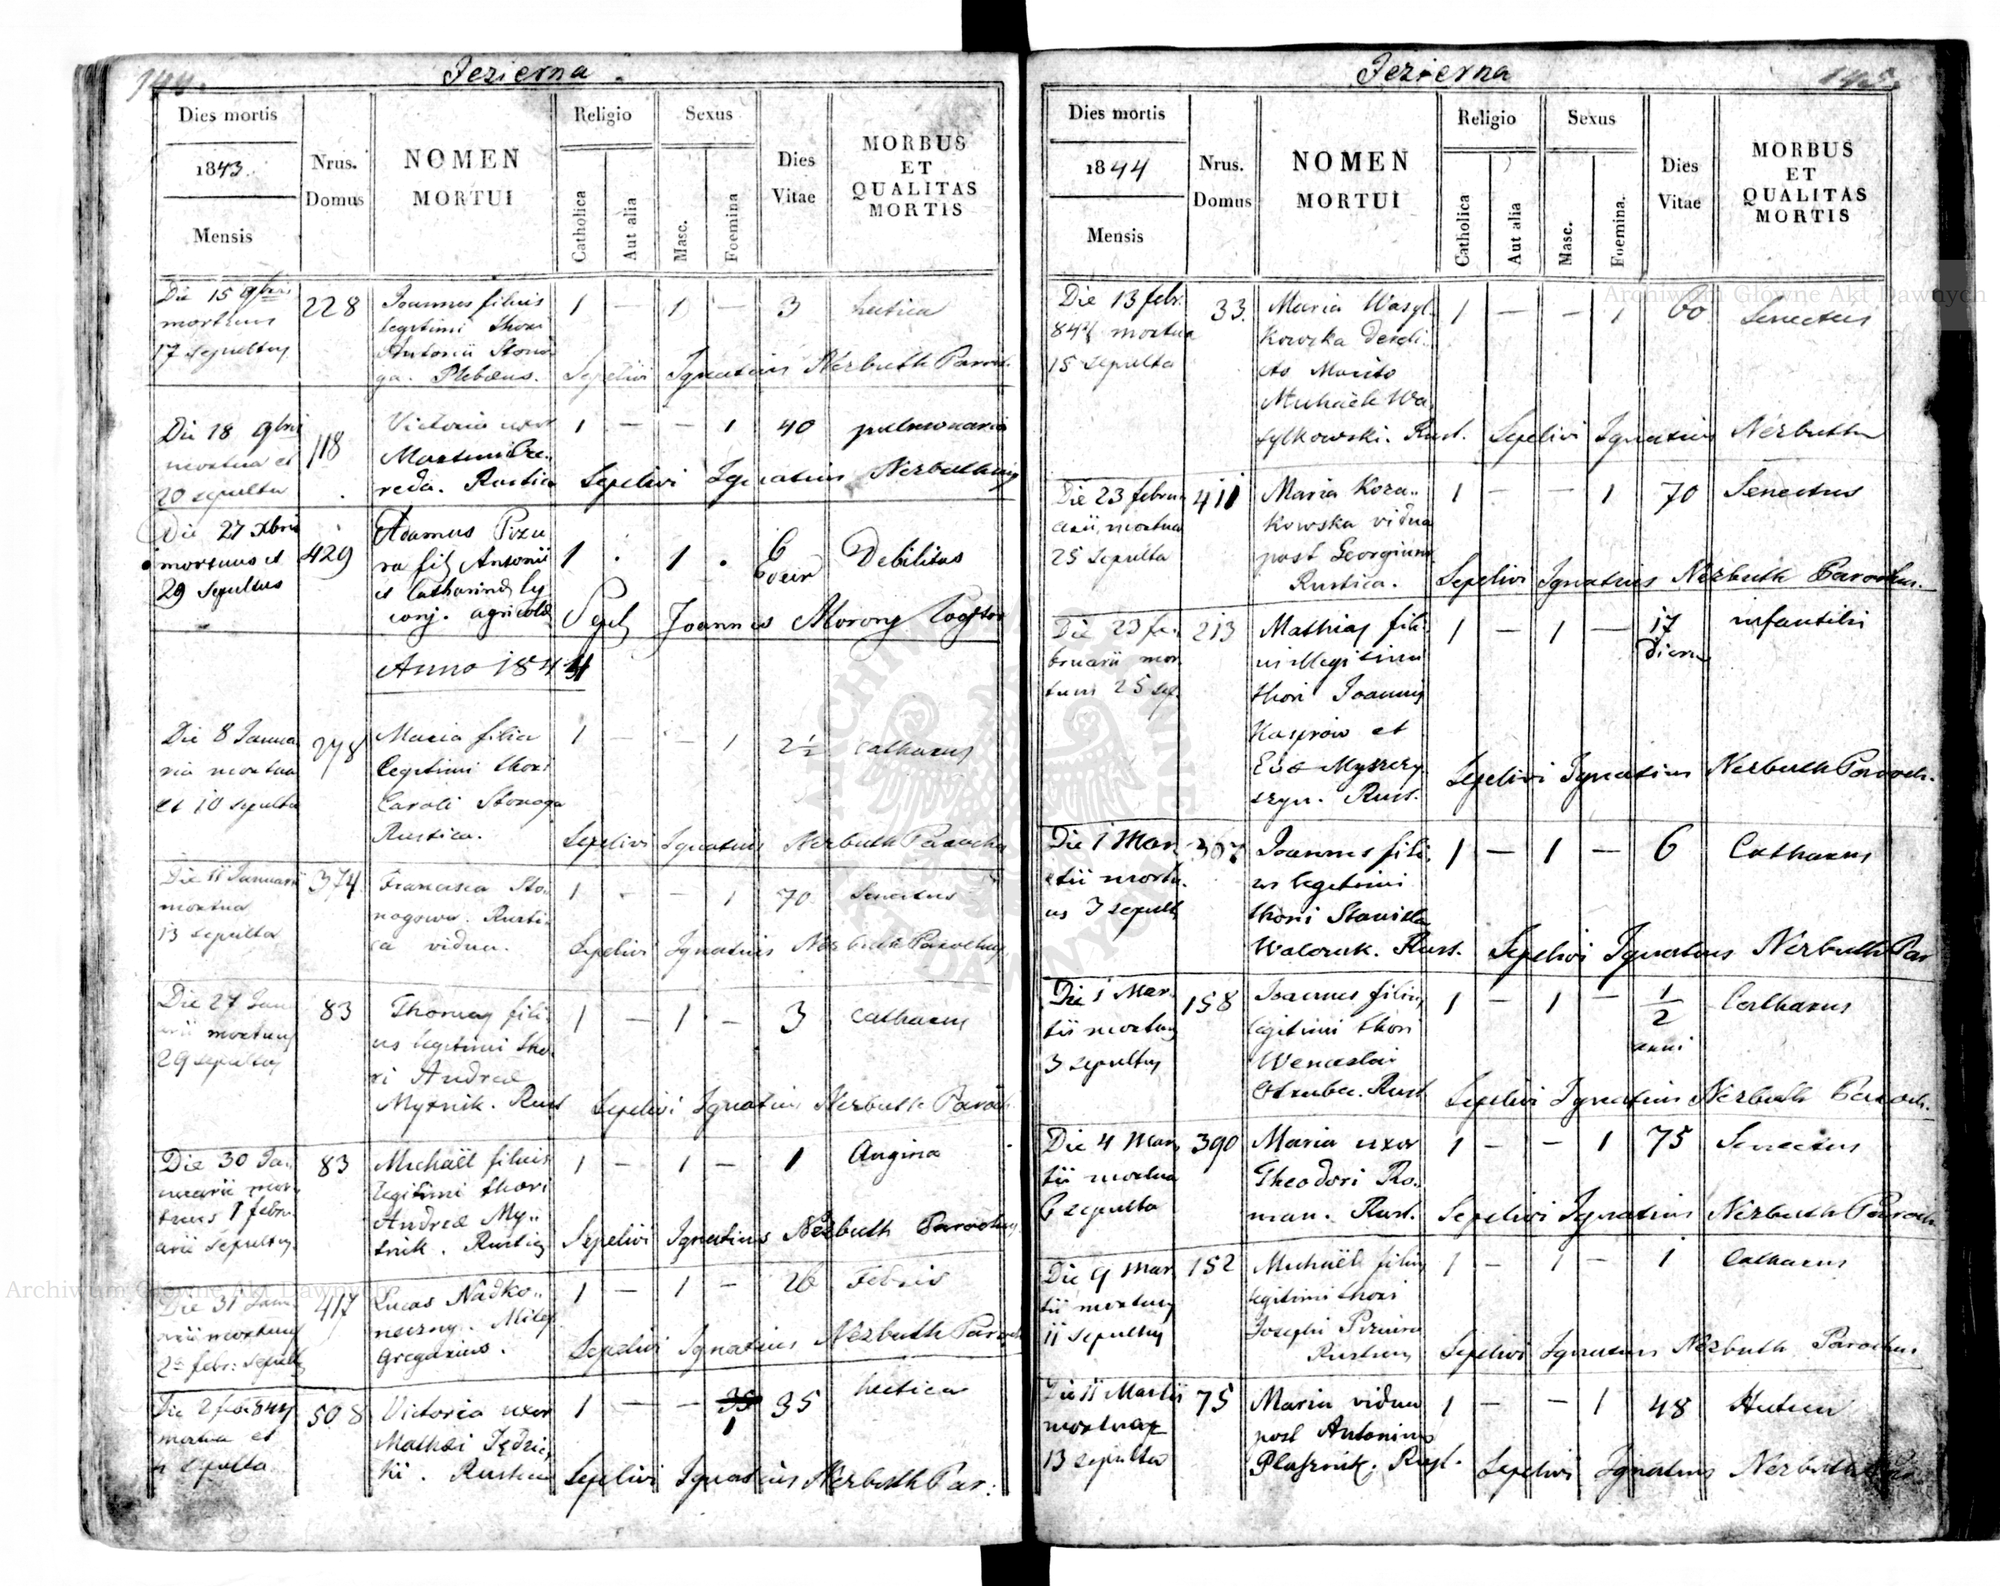 144.
Jezierna.
Dies mortis
1843.
Mensis
Nrus.
Domus
NOMEN
MORTUI
Religio
Catholica
Aut alia
Sexus
Masc.
Foemina
Dies
Vitae
MORBUS
ET
QUALITAS
MORTIS
Die 15 9bris 228 Joannes filius 1 — 1 — 3 hectica
mortuus legitimi thori
17 sepultus Antonii Stono
ga. Plebaeus. Sepelivi Ignatius Nerbuth Paroch.
Die 18 9bris 118 Victoria uxor 1 — — 1 40 pulmonaria
mortua et Martini
20 sepulta reda. Rustica Sepelivi Ignatius Nerbuth
Die 27 Xbris 429 Adamus Pizu 1 . 1 . 6 Debilitas
mortuus et ra fil Antonii
29 sepultus et Catharinae
conj. agricolae Sepel Joannes Morony
Anno 1844
Die 8 Janua 278 Maria filia 1 — — 1 2½ Catharus
ria mortua legitimi thori
et 10 sepulta Caroli Stonoga
Rustica. Sepelivi Ignatius Nerbuth Parochus
Die 11 Januarii 374 Francisca Sto 1 - - 1 70 Senectus
mortua nogowa. Rusti
13 sepulta ca vidua. Sepelivi Ignatius Nerbuth Parochus
Die 27 Jan 83 Thomas fili 1 — 1 — 3 Catharus
uarii mortuus us legitimi tho
29 sepultus ri Andreae
Mytnik. Rust Sepelivi Ignatius Nerbuth Paroch.
Die 30 Ja 83 Michaël filius 1 — 1 — 1 Angina
nuarii mor legitimi thori
tuus 1 febru Andreae My
arii sepultus. tnik. Rustici Sepelivi Ignatius Nerbuth Parochus
Die 31 Janu 417 Lucas Nadko 1 — 1 — 26 Febris
arii mortuus neczny. Miles
2 febr: sepult Gregarius. Sepelivi Ignatius Nerbuth Paroch
Die 2 febr 844 508 Victoria uxor 1 — — 1 35 hectica
mortua et Mathaei
sepulta Rustica Sepelivi Ignatius Nerbuth Par:
Jezierna
145.
Dies mortis
1844
Mensis
Nrus.
Domus
NOMEN
MORTUI
Religio
Catholica
Aut alia
Sexus
Masc.
Foemina.
Dies
Vitae
MORBUS
ET
QUALITAS
MORTIS
Die 13 febr. 33. Maria Wasyl 1 — — 1 60 Senectus
844 mortua kowska
15 sepulta Marito
Michaële Wa
sylkowski. Rust. Sepelivi Ignatius Nerbuth
Die 23 febru 411 Maria Koza 1 - - 1 70 Senectus
arii, mortua kowska vidua
25 sepulta post Georgium
Rustica. Sepelivi Ignatius Nerbuth Parochus.
Die 23 fe 213 Mathias fili 1 — 1 — 17 infantilis
bruarii mor us illegitimi dierum
tuus 25 sep. thori Joannis
Kasprow et
Eva Myszczy
szyn. Rust. Sepelivi Ignatius Nerbuth Paroch.
Die 1 Mar 367 Joannes fili 1 — 1 — 6 Catharus
tii mortu us legitimi
us 3 sepult thori Stanisla
Walczuk. Rust. Sepelivi Ignatius Nerbuth Par
Die 1 Mar 158 Joannes filius 1 — 1 — 1/2 Catharus
tii mortuus legitimi thori anni
3 sepultus Wenceslai
Otruba. Rust Sepelivi Ignatius Nerbuth Paroch.
Die 4 Mar 390 Maria uxor 1 - - 1 75 Senectus
tii mortua Theodori Ro
6 sepulta man. Rust. Sepelivi Ignatius Nerbuth Paroch
Die 9 Mar 152 Michaël filius 1 - 1 — 1 Catharus
tii mortuus legitimi thori
11 sepultus Josephi
Rusticus Sepelivi Ignatius Nerbuth Parochus
Die 11 Martii 75 Maria vidua 1 — — 1 48
mortua post Antonium
13 sepulta Rust. Sepelivi Ignatius Nerbuth
Archiwum Główne Akt Dawnych
Archiwum Główne Akt Dawnych